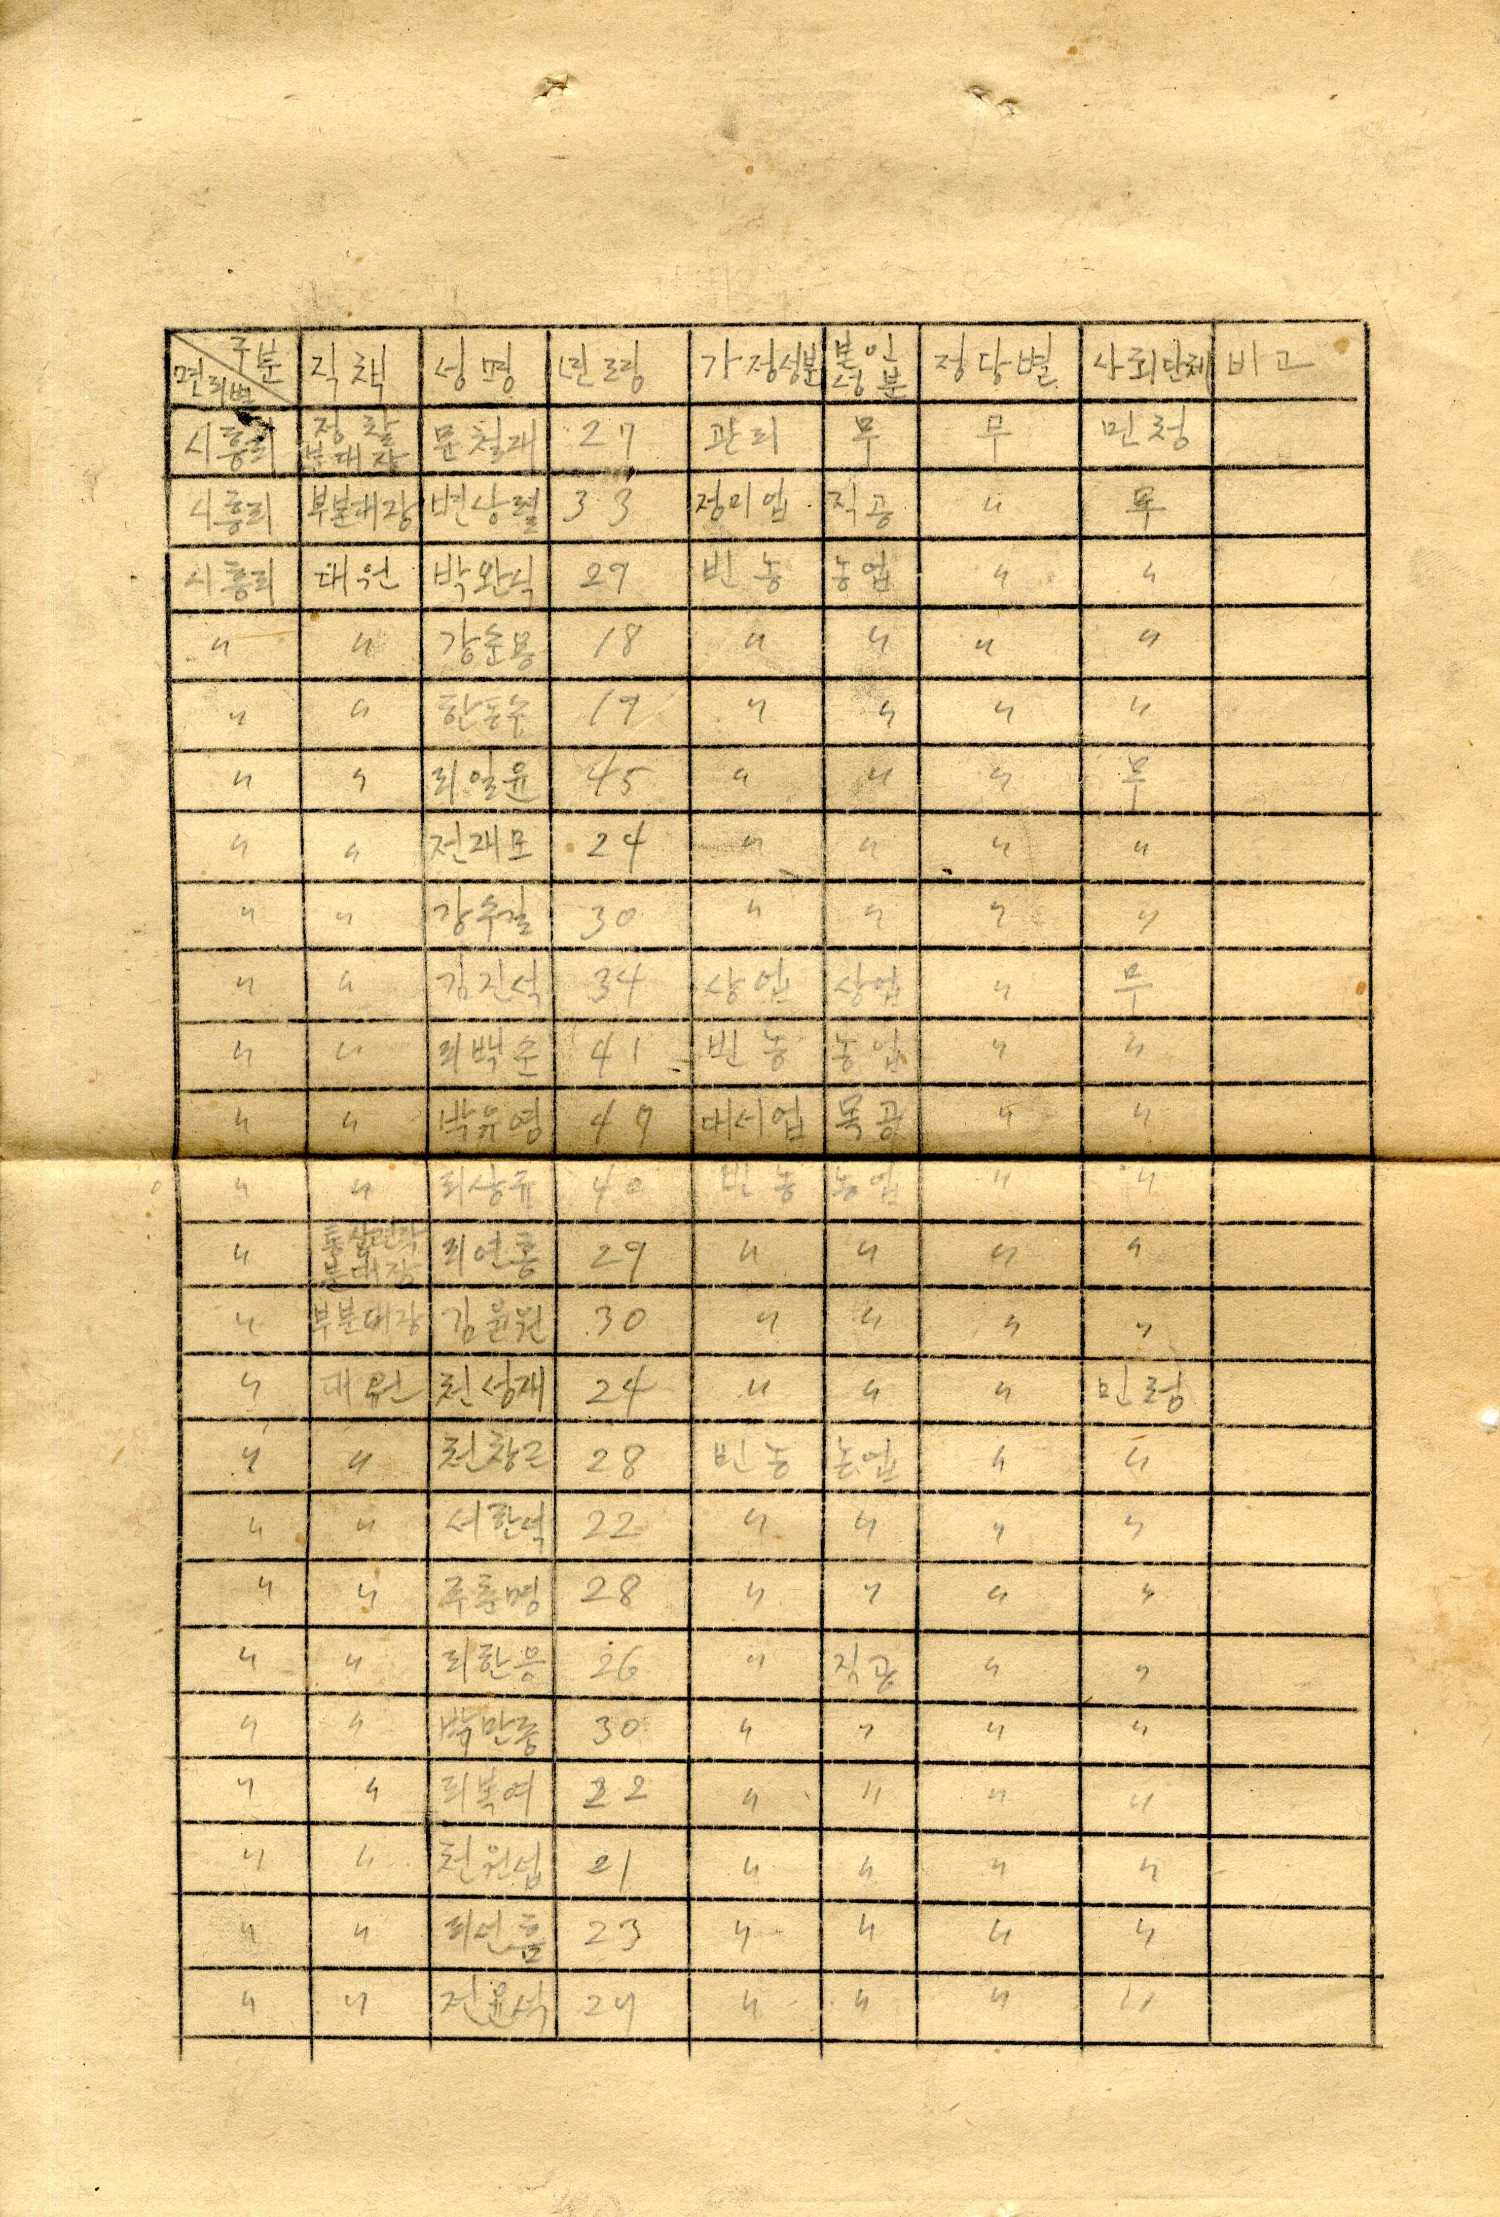 구분 면리별 직책 성명 년령 가정성분 본인성분 정당별 사회단체 비고
시흥리 정찰분대장 문철재 27 관리 무 무 민청
시흥리 부분대장 변상렬 33 정미업 직공 〃 무
시흥리 대원 박완식 29 빈농 농업 〃 〃
〃 〃 강춘용 18 〃 〃 〃 〃
〃 〃 한동수 19 〃 〃 〃 〃
〃 〃 리일윤 45 〃 〃 〃 무
〃 〃 전재모 24 〃 〃 〃 〃
〃 〃 강수길 30 〃 〃 〃 〃
〃 〃 김진석 34 상업 상업 〃 무
〃 〃 리백순 41 빈농 농업 〃 〃
〃 〃 박유영 47 대서업 목공 〃 〃
〃 〃 리상규 40 빈농 농업 〃 〃
〃 분대장 리연홍 29 〃 〃 〃 〃
〃 부분대장 김윤원 30 〃 〃 〃 〃
〃 대원 천성재 24 〃 〃 〃 민청
〃 〃 천창근 28 빈농 농업 〃 〃
〃 〃 서한석 22 〃 〃 〃 〃
〃 〃 주춘명 28 〃 〃 〃 〃
〃 〃 리한응 26 〃 직공 〃 〃
〃 〃 박만웅 30 〃 〃 〃 〃
〃 〃 리복여 22 〃 〃 〃 〃
〃 〃 천원섭 21 〃 〃 〃 〃
〃 〃 리연흠 23 〃 〃 〃 〃
〃 〃 전윤석 24 〃 〃 〃 〃